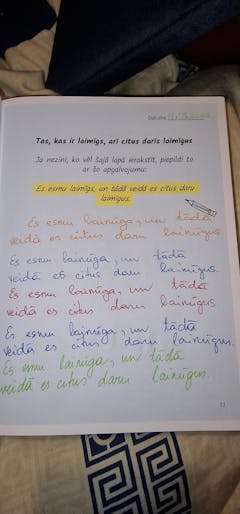 Datums
Tas, kas ir laimīgs, arī citus darīs laimīgus
Ja nezini, ko vēl šajā lapā ierakstīt, piepildi to
ar šo apgalvojumu:
Es esmu laimīgs, un tādā veidā es citus daru
laimīgus.
Es esmu laimīga, un tādā
veidā es citus daru laimīgus.
Es esmu laimīga, un tādā
veidā es citus daru laimīgus.
Es esmu laimīga, un tādā
veidā es citus daru laimīgus
Es esmu laimīga, un tādā
veidā es citus daru laimīgus.
Es esmu laimīga, un tādā
veidā es citus daru laimīgus.